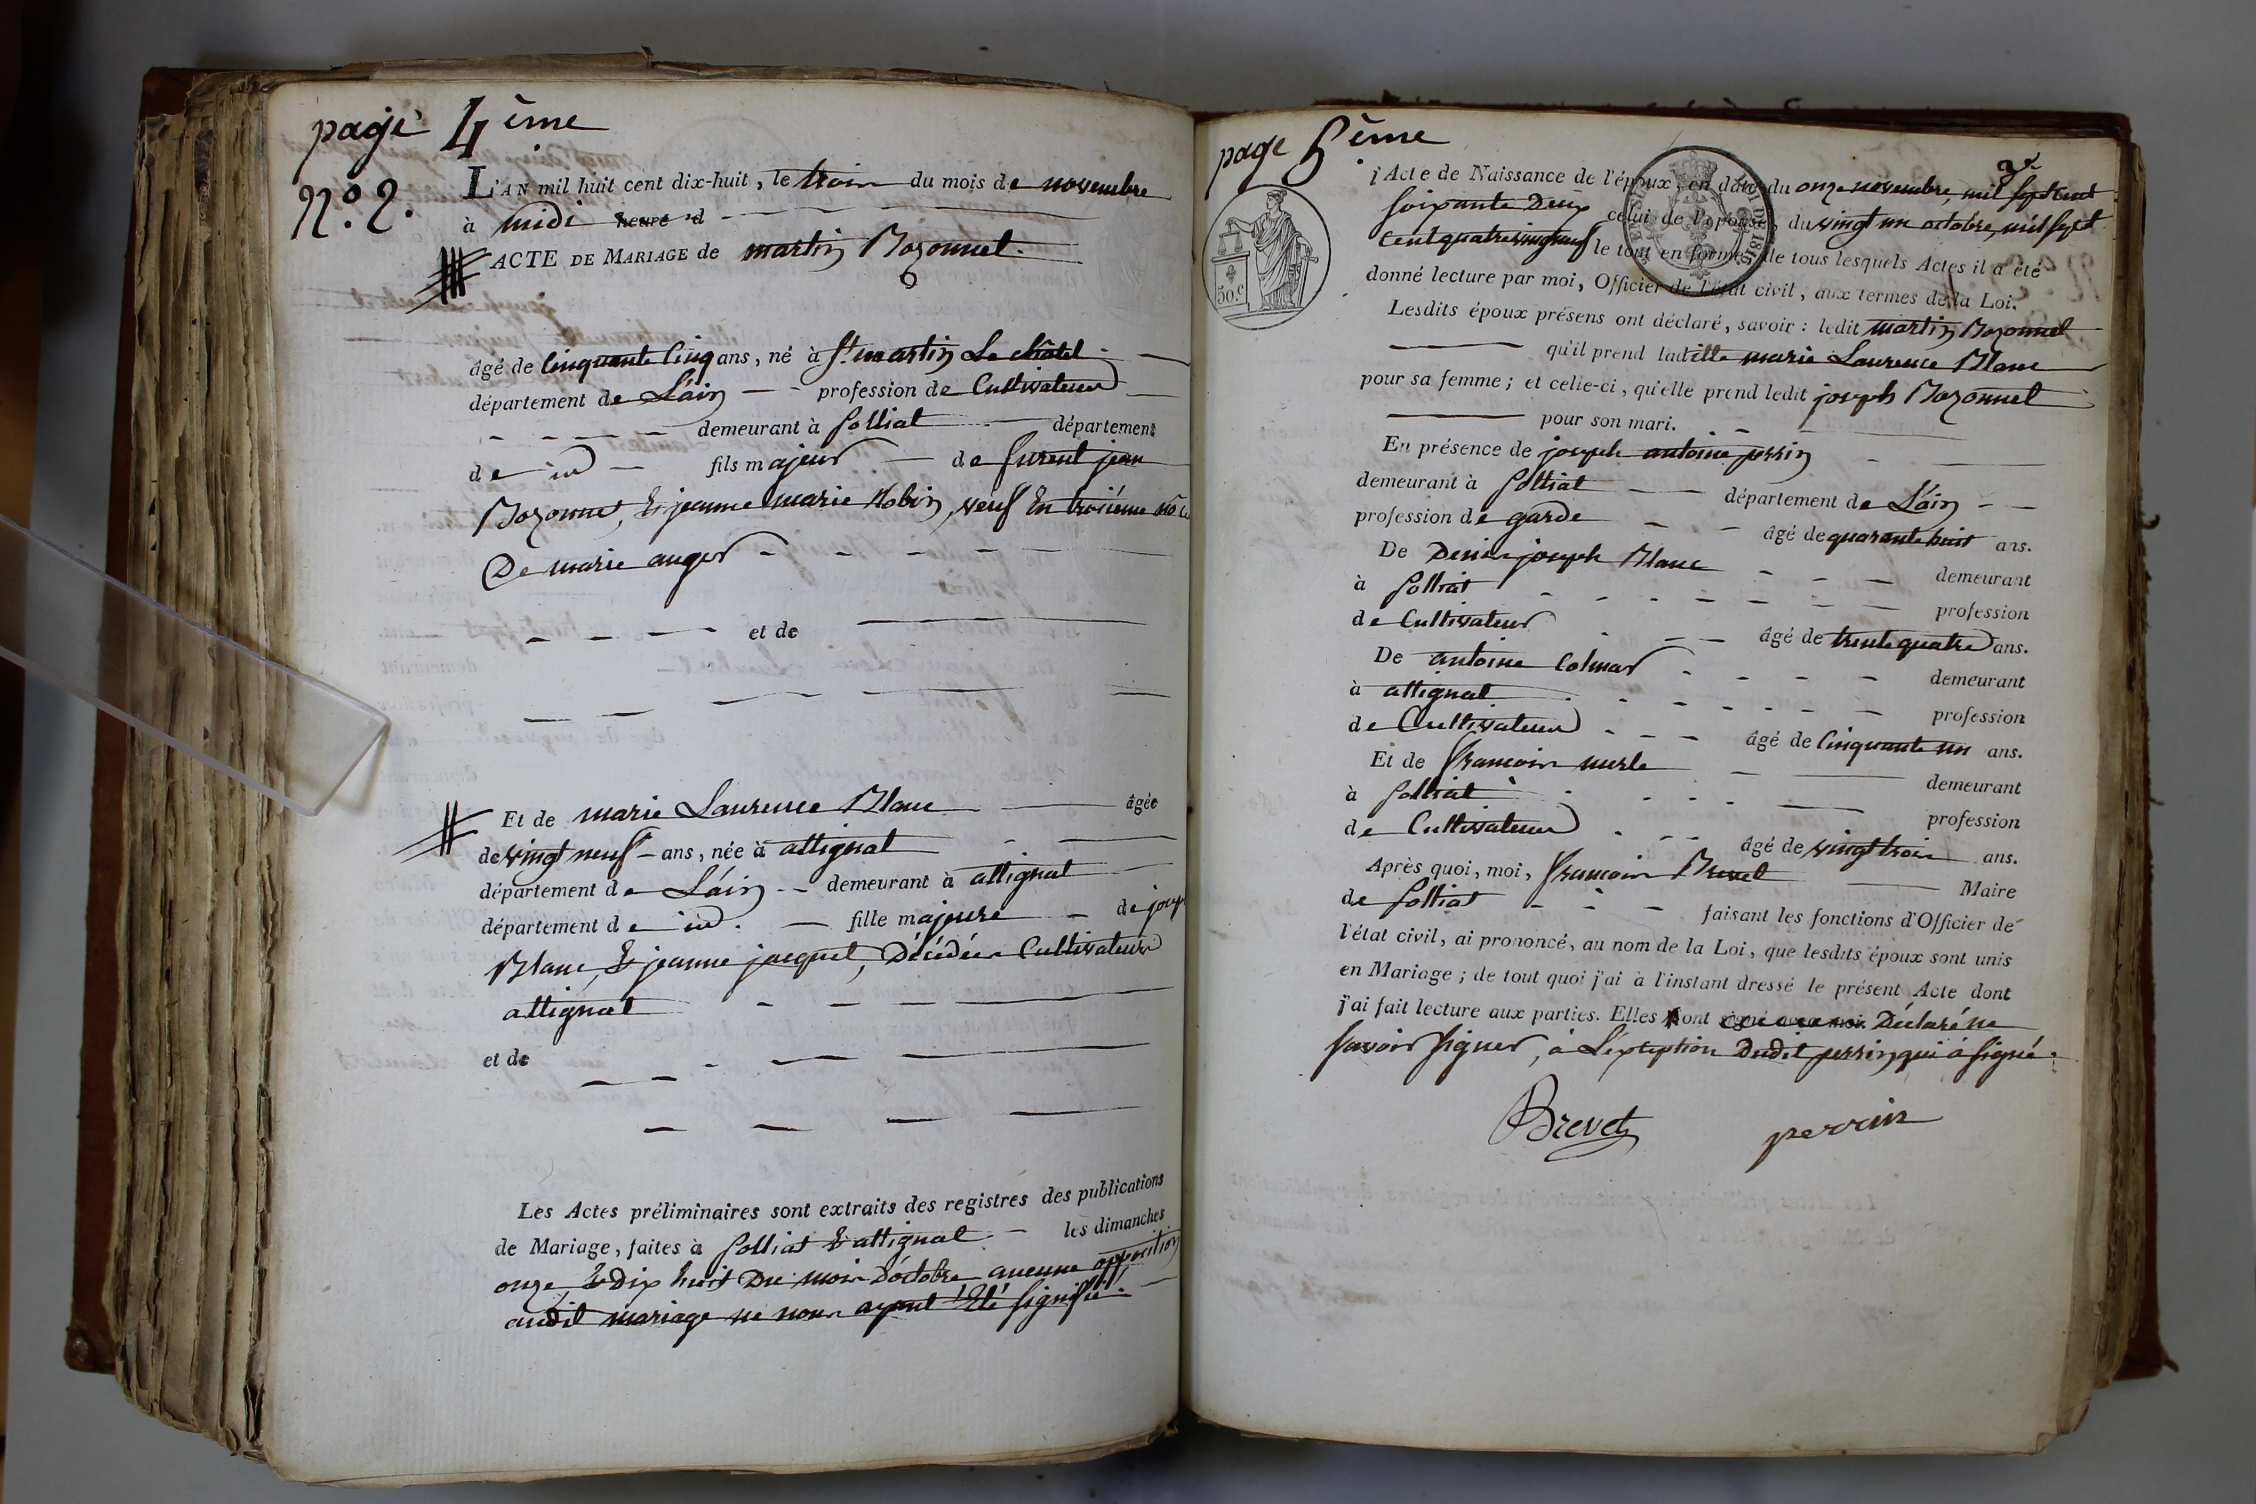 page 4ème
N.o 2.
L'AN mil huit cent dix-huit, le trois du mois de novembre
à midi heure d
ACTE DE MARIAGE de martin Bozonnet.
âgé de Cinquante Cinq ans, né à St. martin Le châtel
département de L'ain profession de Cultivateur
demeurant à polliat département
de id fils majeur de furent jean
Bozonnet, & jeanne marie Robin, veuf En troisieme
De marie auger
et de
Et de marie Laurence Blanc âgée
de vingt neuf ans, née à attignat
département de L'ain demeurant à attignat
département de id. fille majeure de
Blanc, & jeanne jacquet, Décédés Cultivateurs
attignat
et de
Les Actes préliminaires sont extraits des registres des publications
de Mariage, faites à polliat & attignat les dimanches
onze, & dix huit Du mois D'octobre aucune opposition
audit mariage ne nous ayant Eté signifié.
page 5ème
Acte de Naissance de l'époux, en date du onze novembre, mil sept cent
soixante Deux celui de l'épouse, du vingt un octobre, mil sept
Cent quatre vingt neuf le tout en forme; de tous lesquels Actes il a été
50.c
donné lecture par moi, Officier de l'état civil, aux termes de la Loi.
Lesdits époux présens ont déclaré, savoir: ledit martin Bozonnet
qu'il prend ladite marie Laurence Blanc
pour sa femme; et celle-ci, qu'elle prend ledit joseph Bozonnet
pour son mari.
En présence de joseph antoine perrin
demeurant à polliat département de L'ain
profession de garde âgé de quarante huit ans.
De Denis joseph Blanc demeurant
à polliat profession
de Cultivateur âgé de trente quatre ans.
De antoine Colmar demeurant
à attignat profession
de Cultivateur âgé de Cinquante un ans.
Et de françois merle demeurant
à polliat profession
de Cultivateur âgé de vingt trois ans.
Après quoi, moi, françois Brevet Maire
de polliat faisant les fonctions d'Officier de
l'état civil, ai prononcé, au nom de la Loi, que lesdits époux sont unis
en Mariage; de tout quoi j'ai à l'instant dressé le présent Acte dont
j'ai fait lecture aux parties. Elles ont signé avec moi. Déclaré ne
savoir signer, à L'exception Dudit perrin qui à signé.
Brevet perrin